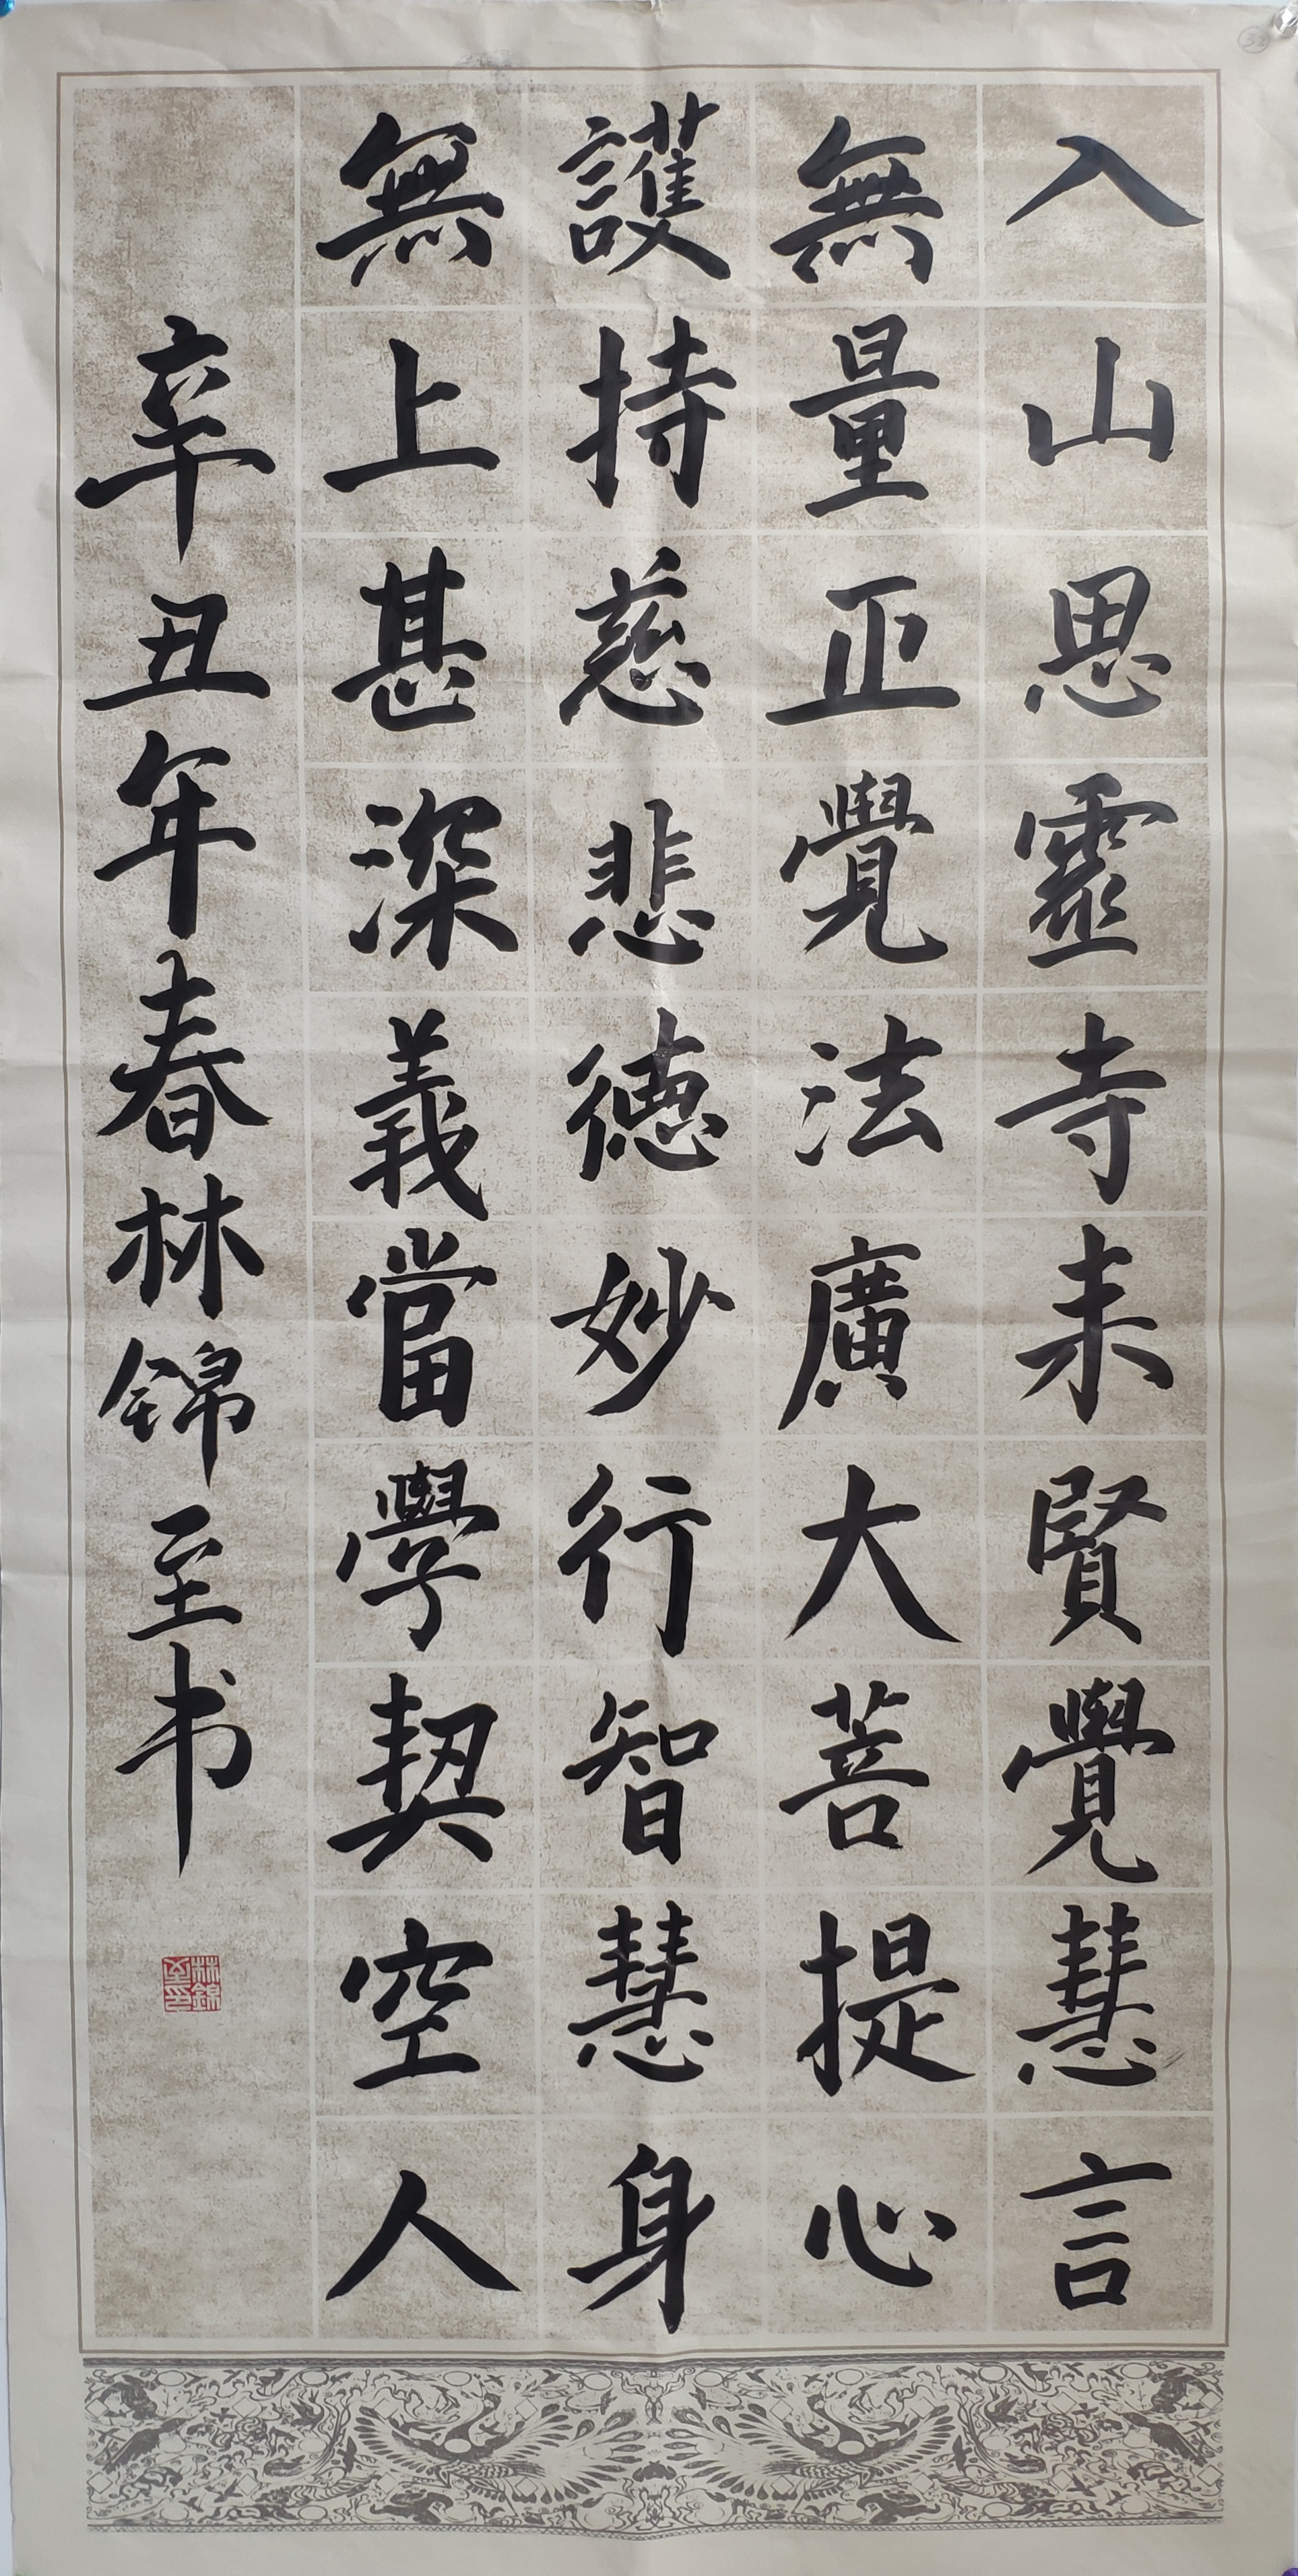 入山思靈寺未賢覺慧言
無量正覺法廣大菩提心
護持慈悲德妙行智慧身
無上甚深義當學契空人
辛丑年春林錦至书
林錦至印
32